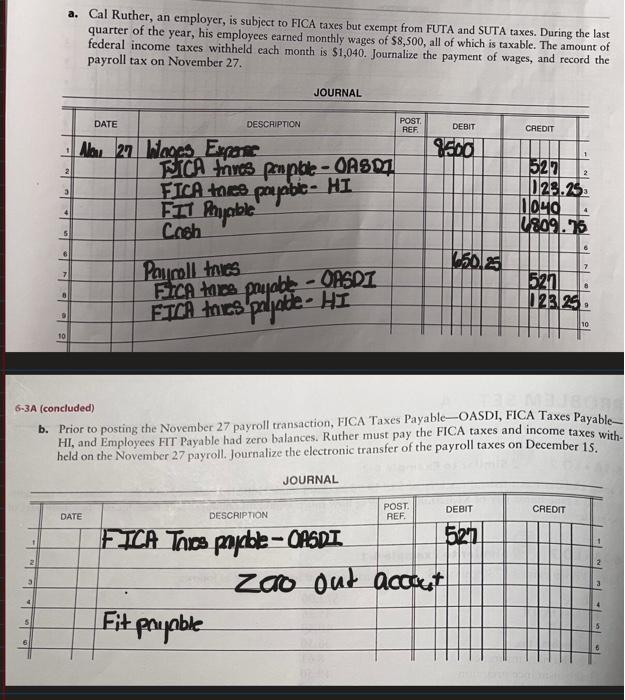 a. Cal Ruther, an employer, is subject to FICA taxes but exempt from FUTA and SUTA taxes. During the last
quarter of the year, his employees earned monthly wages of $8,500, all of which is taxable. The amount of
federal income taxes withheld each month is $1,040. Journalize the payment of wages, and record the
payroll tax on November 27.
JOURNAL
DATE DESCRIPTION POST. REF. DEBIT CREDIT
1 Nov 27 Wages Expense 8500 1
2 FICA taxes payable - OASDI 527 2
3 FICA taxes payable - HI 123.25 3
4 FIT Payable 1040 4
5 Cash 6809.75
6 6
7 Payroll taxes 650.25 7
8 FICA taxes payable - OASDI 527 8
9 FICA taxes payable - HI 123 25 9
10 10
6-3A (concluded)
b. Prior to posting the November 27 payroll transaction, FICA Taxes Payable—OASDI, FICA Taxes Payable—
HI, and Employees FIT Payable had zero balances. Ruther must pay the FICA taxes and income taxes with-
held on the November 27 payroll. Journalize the electronic transfer of the payroll taxes on December 15.
JOURNAL
DATE DESCRIPTION POST. REF. DEBIT CREDIT
1 FICA Taxes payable - OASDI 527 1
2 2
3 Zero out account 3
4 4
5 Fit payable 5
6 6